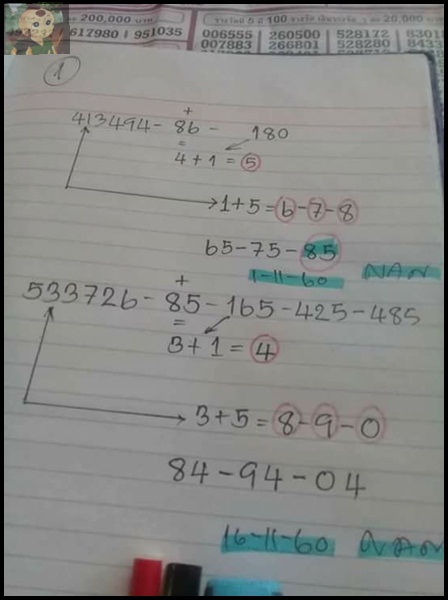 200,000 บาท
20,000 บาท
617980 951035
006555 260500 528172
007883 266801 528280
1
+
413494 - 86 - 180
=
4 + 1 = 5
1 + 5 = 6 - 7 - 8
65 - 75 - 85
1-11-60 NAN
+
533726 - 85 - 165 - 425 - 485
=
3 + 1 = 4
3 + 5 = 8 - 9 - 0
84 - 94 - 04
16-11-60 NAN